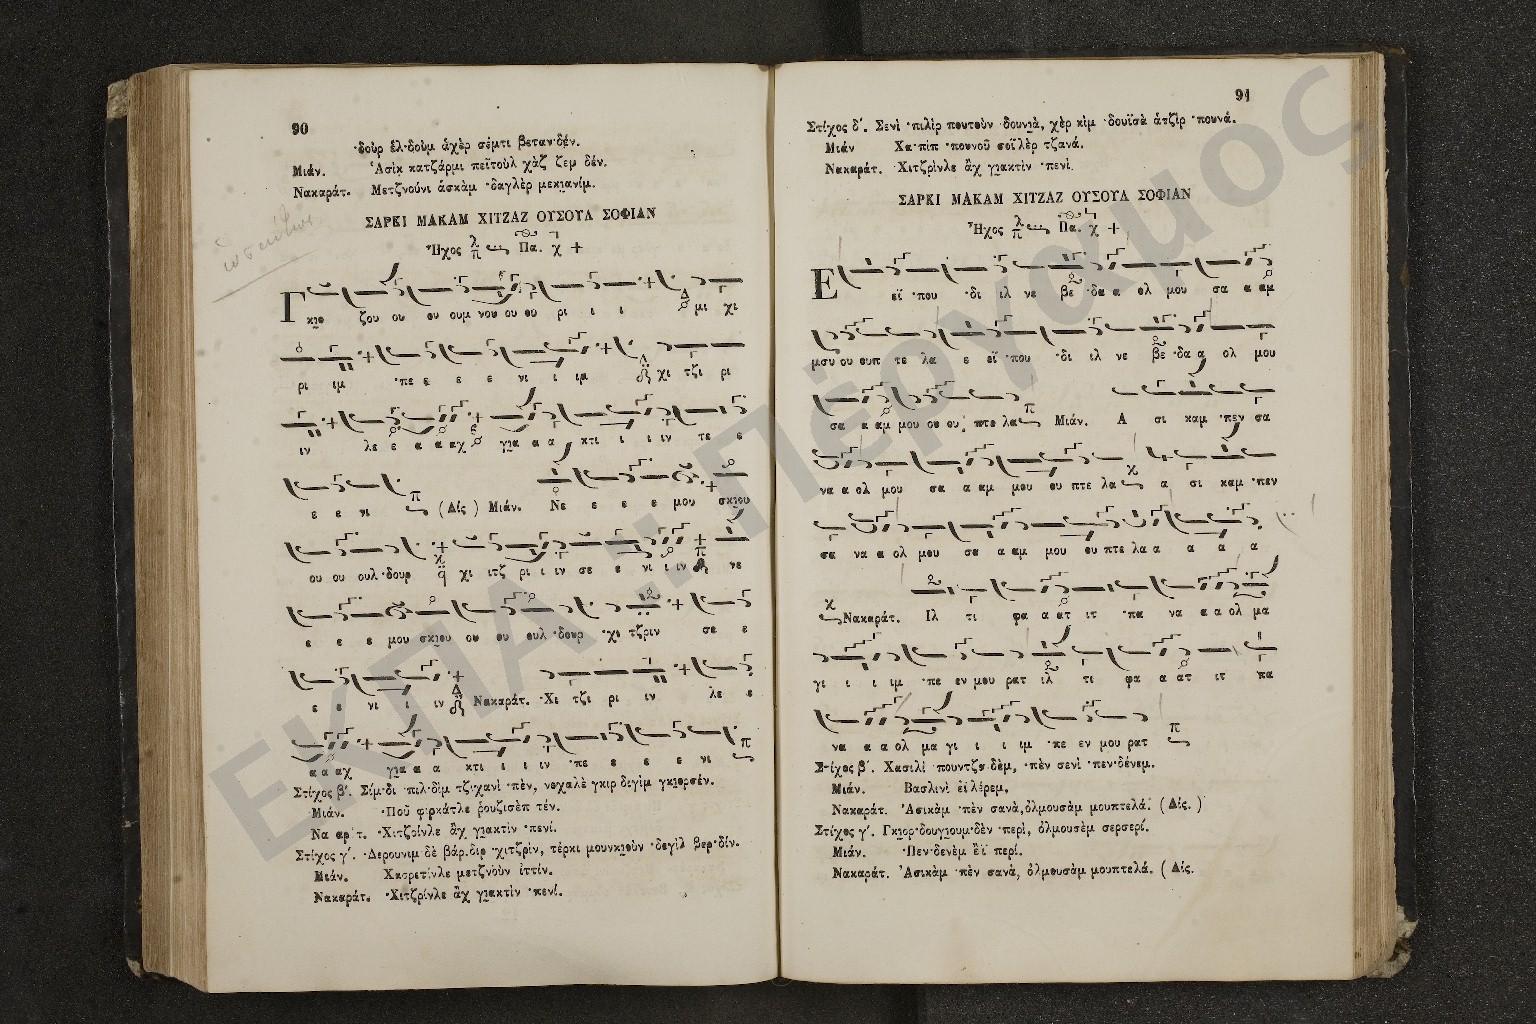 90
·δοὺρ ἐλ·δοὺμ ἀχὲρ σέμτι βεταν·δέν.
Μιάν. Ἀσὶκ κατζάρμι πεϊτοὺλ χὰζ ζεμ δέν.
Νακαράτ. Μετζνοὺνι ἀσκὰμ ·δαγλὲρ μεκιανίμ.
ΣΑΡΚΙ ΜΑΚΑΜ ΧΙΤΖΑΖ ΟΥΣΟΥΛ ΣΟΦΙΑΝ
Ἦχος λ π Πα. χ +
Γ κιο ζου ου ου ουμ νου ου ου ρι ι ι μι χι
ρι ιμ ·πε ε ε ε νι ι ιμ χι τζι ρι
ιν λε ε α α αχ για α α κτι ι ι ιν τε ε
ε ε νι (Δίς) Μιάν. Νε ε ε ε μου σκιου
ου ου ουλ·δουρ χι ιτζ ρι ι ιν σε ε νι ι ιν νε
ε ε ε μου σκιου ου ου ουλ ·δουρ ·χι τζριν σε ε
ε ε νι ι ιν Νακαράτ. ·Χι τζι ρι ιν λε ε
α α αχ για α α κτι ι ι ιν ·πε ε ε ε νι
Στίχος β΄. Σίμ·δι ·πιλ·δὶμ τζιχανὶ ·πὲν, νοχαλὲ γκιρ διγὶμ γκιορσέν.
Μιάν. ·Ποῦ φιρκάτλε ῥουζισὲπ τέν.
Να αρ τ. ·Χιτζρίνλε ἂχ γιακτὶν ·πενί.
Στίχος γ΄. ·Δερουνιμ·δὲ βάρ·διρ ·χιτζρὶν, τέρκι μουνκιοὺν ·δεγὶλ βερ·δίν.
Μιάν. Χασρετίνλε μετζνοὺν ἰττίν.
Νακαράτ. ·Χιτζρίνλε ἂχ γιακτὶν ·πενί.
91
Στίχος δ΄. Σενὶ ·πιλὶρ πουτοὺν ·δουνιὰ, χὲρ κὶμ ·δουϊσὰ ἀτζὶρ ·πουνά.
Μιάν Χα·πὶπ ·πουνοῦ σοϊλὲρ τζανά.
Νακαράτ. ·Χιτζρίνλε ἂχ γιακτὶν ·πενί.
ΣΑΡΚΙ ΜΑΚΑΜ ΧΙΤΖΑΖ ΟΥΣΟΥΛ ΣΟΦΙΑΝ
Ἦχος λ π Πα. χ +
Ε εϊ ·που ·δι ιλ νε βε ·δα α ολ μου σα α αμ
μου ου ουπ τε λα ε εϊ ·που ·δι ιλ νε βε ·δα α ολ μου
σα α αμ μου ου ου πτε λα Μιάν. Α σι καμ ·πεν σα
να α ολ μου σα α αμ μου ου πτε λα α σι καμ ·πεν
σα να α ολ μου σα α αμ μου ου πτε λα α α α α
Νακαράτ. Ιλ τι φα α ατ ιτ ·πα να α α ολ μα
γι ι ι ιμ ·πε εν μου ρατ ιλ τι φα α ατ ιτ πα
να α α ολ μα γι ι ι ιμ ·πε εν μου ρατ
Στίχος β΄. Χασιλὶ ·πουντζα·δὲμ, ·πὲν σενὶ ·πεν·δένεμ.
Μιάν. Βασλινὶ εἴλέρεμ,
Νακαράτ. Ἀσικὰμ ·πὲν σανὰ, ὀλμουσὰμ μουπτελά. (Δίς.)
Στίχος γ΄. Γκιορ·δουγιουμ·δὲν ·περὶ, ὀλμουσὲμ σερσερί.
Μιάν. ·Πεν·δενὲμ ἒϊ περί.
Νακαράτ. Ἀσικὰμ ·πὲν σανὰ, ὀλμουσὰμ μουπτελά. (Δίς.
ΕΚΠΑ.: Πέργαμος